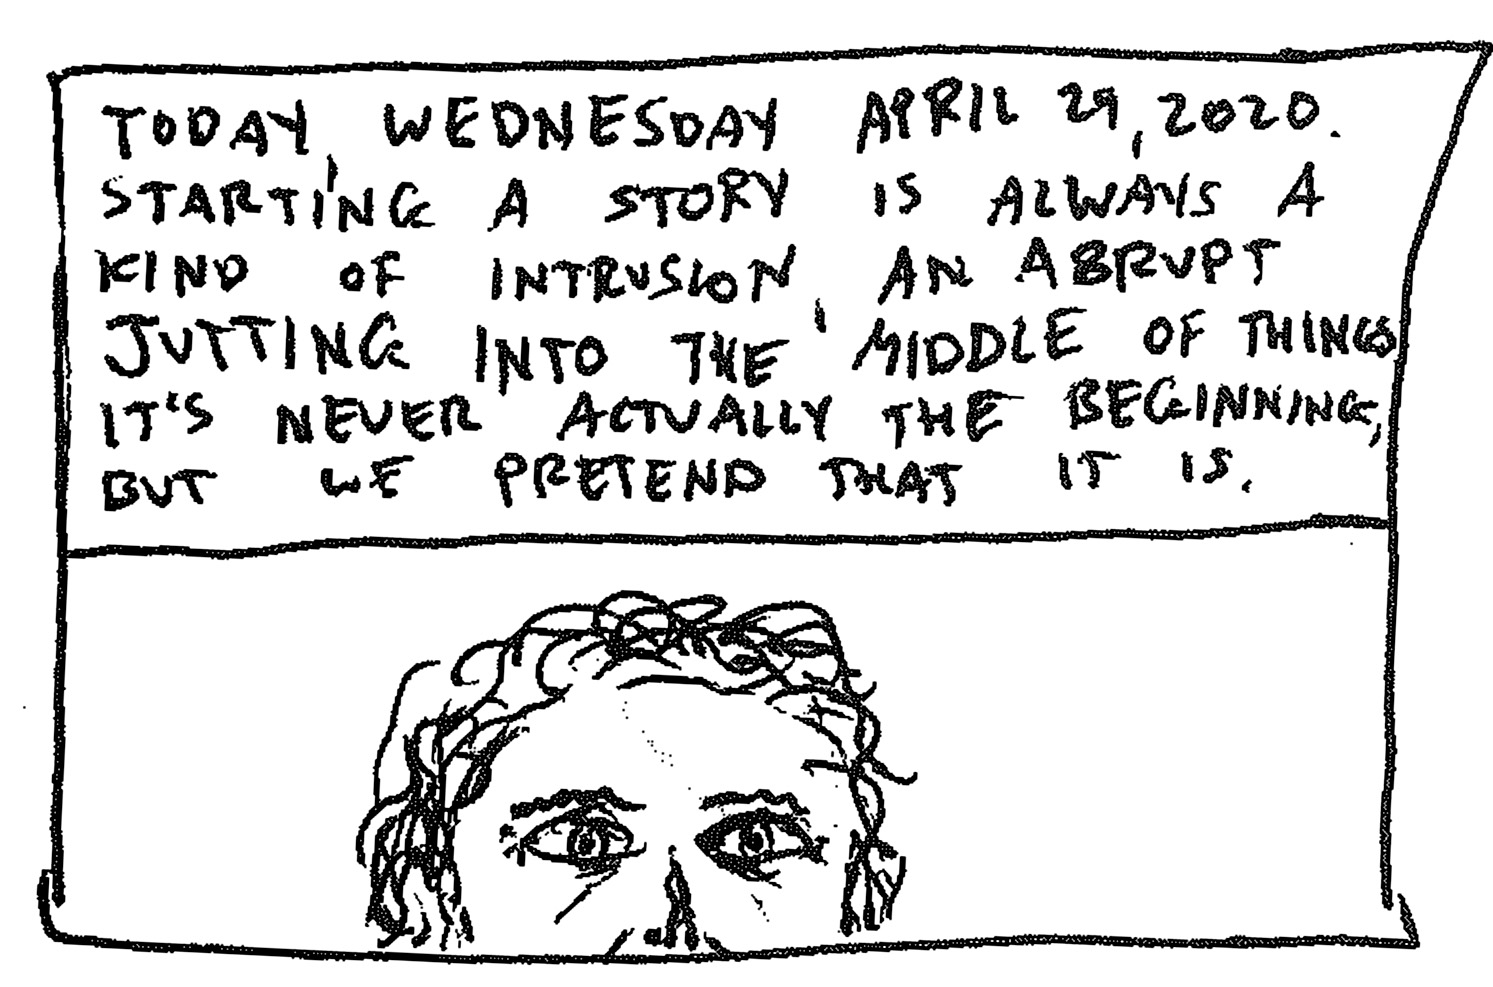 TODAY, WEDNESDAY APRIL 29, 2020.
STARTING A STORY IS ALWAYS A
KIND OF INTRUSION, AN ABRUPT
JUTTING INTO THE MIDDLE OF THINGS
IT'S NEVER ACTUALLY THE BEGINNING,
BUT WE PRETEND THAT IT IS.